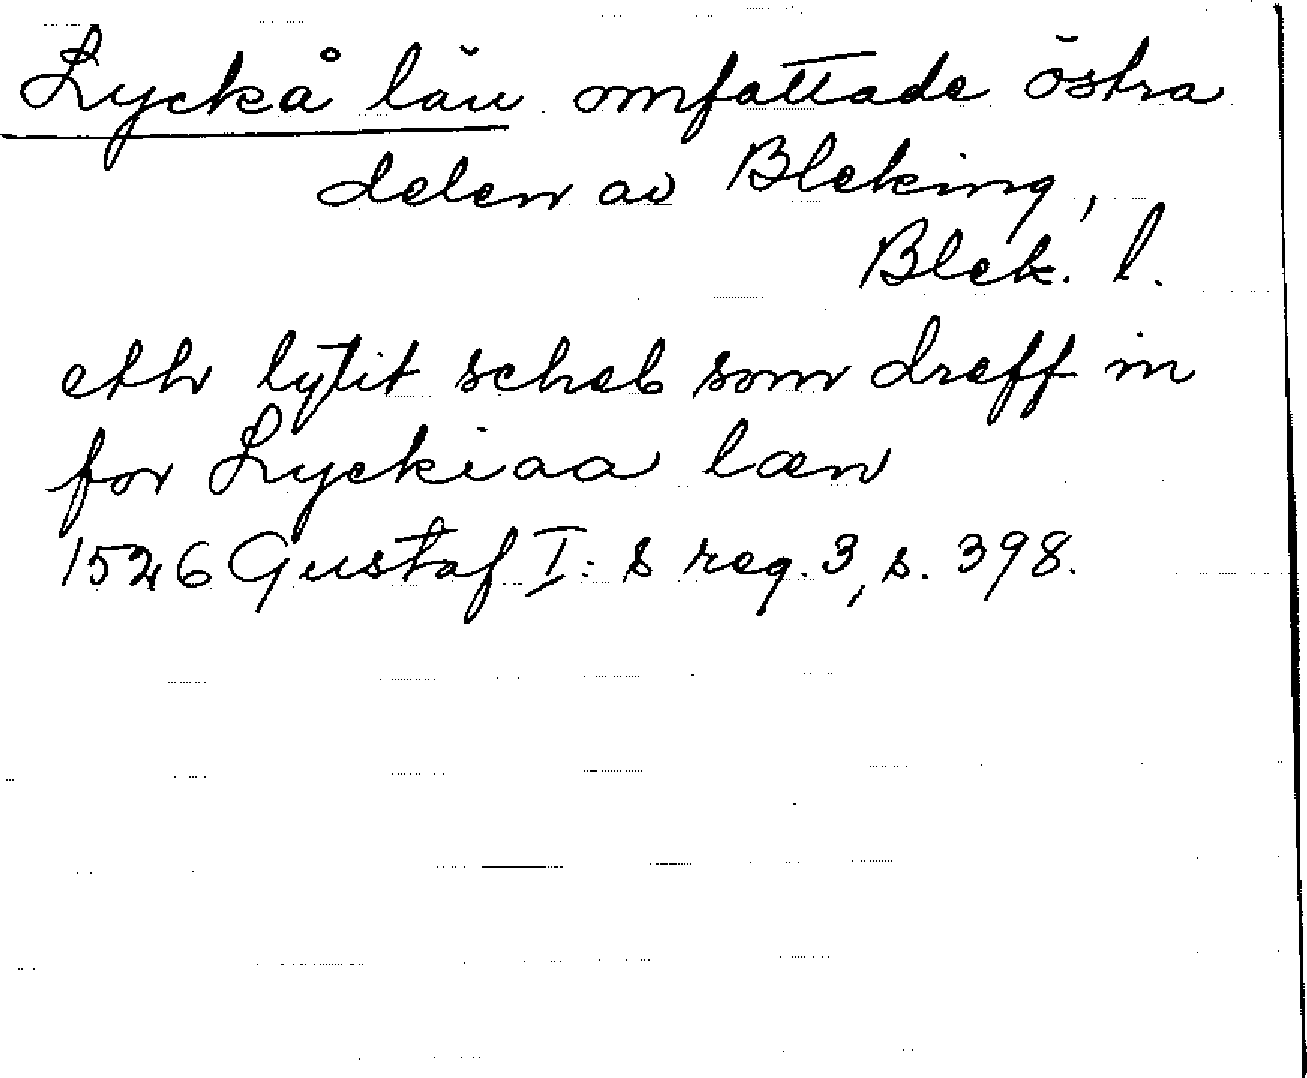 Lyckå län omfattade östra
delen av Bleking,
Blek. l.
ethr lytit scheb som dreff in
for Lyckiaa læn
1526 Gustaf I:s reg. 3, s. 398.